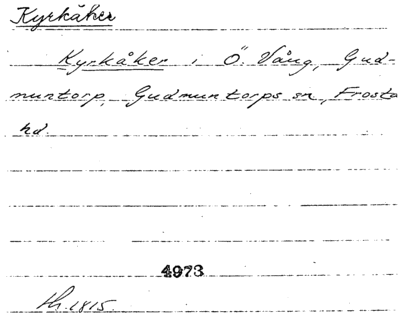 Kyrkåker
Kyrkåker i Ö. Vång, Gud-
muntorp, Gudmuntorps sn, Frosta
hd.
4973
1815.